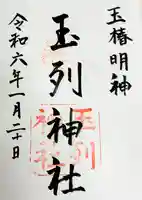 玉椿明神
玉列神社
令和六年一月二十日
玉列
神社